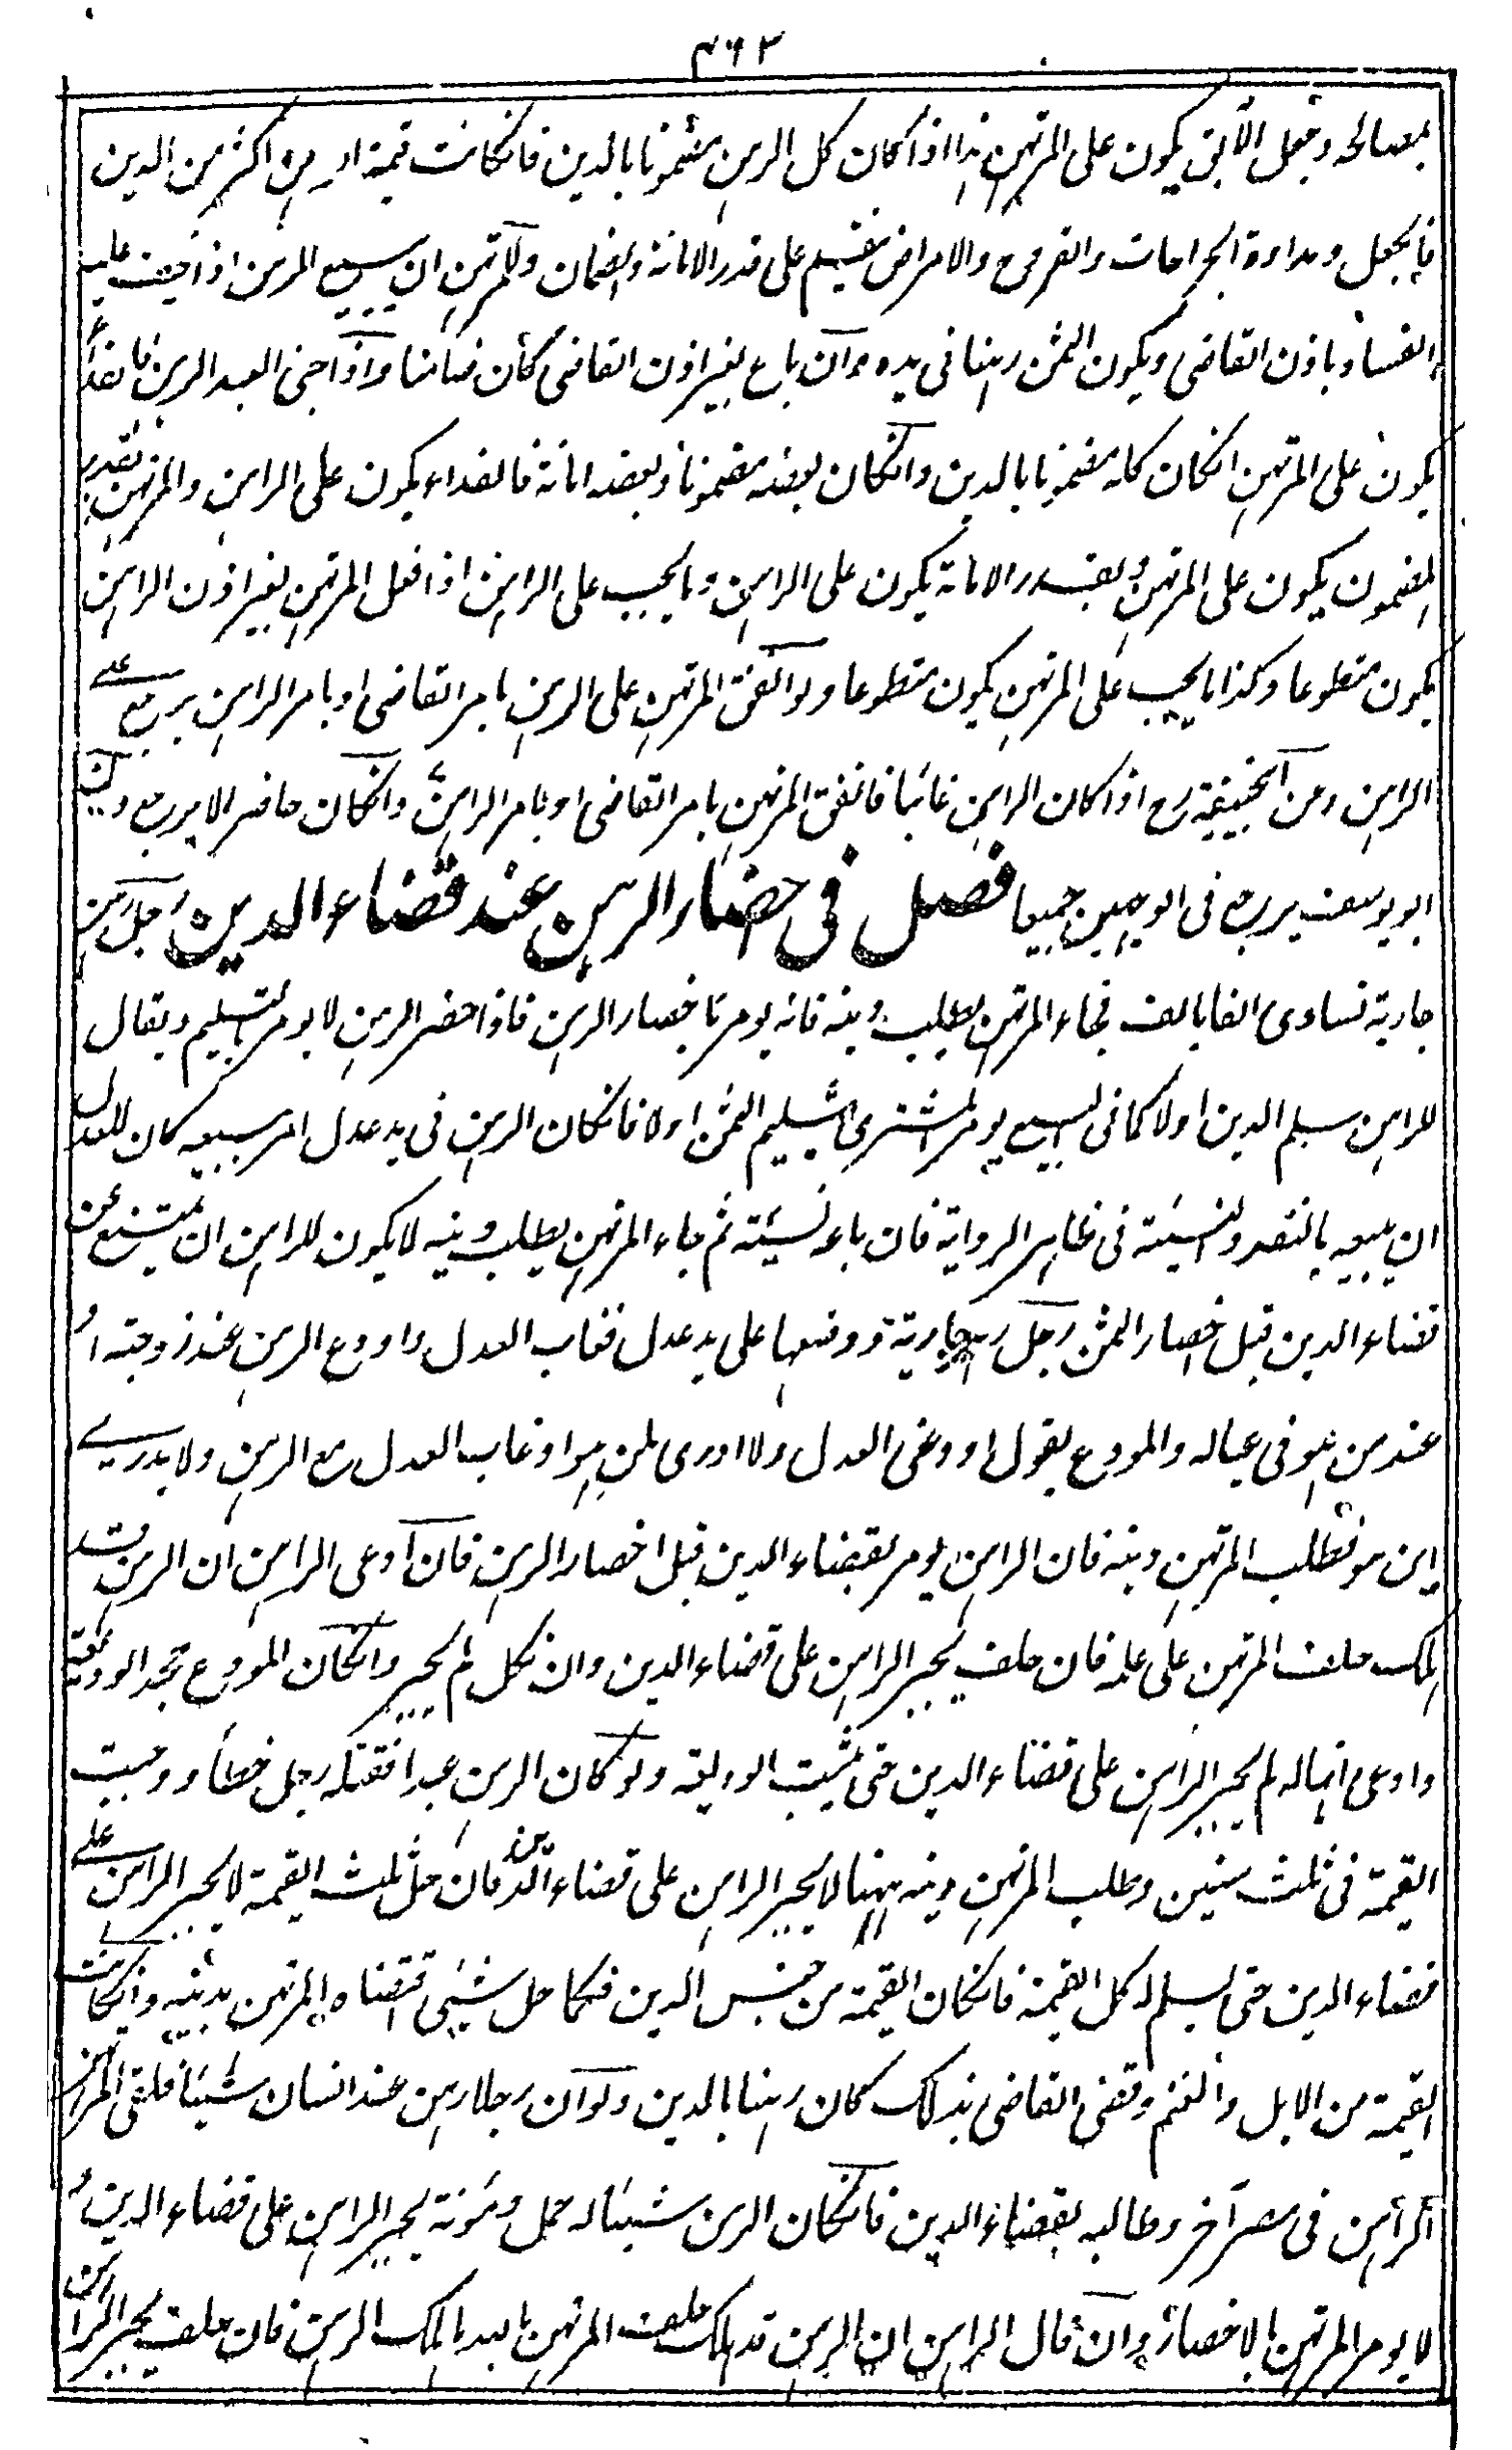 ٤٦٢
بمصالحه وجعل الآبق يكون على المرتهن هذا اذا كان كل الرهن مضمونا بالدين فانكانت قيمة الرهن اكثر من الدين
فالجعل ومداوة الجراحات والقروح والامراض ينقسم على قدر الامانة والضمان وللمرتهن ان يبيع الرهن اذا خيف عليه
الفساد باذن القاضى ويكون الثمن رهنا فى يده وان باع بغير اذن القاضى كان ضامنا واذا جنى العبد الرهن فالفداء
يكون على المرتهن انكان كله مضمونا بالدين وانكان بعضه مضمونا وبعضه امانة فالفداء يكون على الراهن والمرتهن بقدر
المضمون يكون على المرتهن وبقدر الامانة يكون على الراهن وما يجب على الراهن اذا فعل المرتهن بغير اذن الراهن
يكون متطوعا وكذا ما يجب على المرتهن يكون متطوعا ولو انفق المرتهن على الرهن بامر القاضى او بامر الراهن يرجع على
الراهن وعن ابيحنيفة رح اذا كان الراهن غائبا فانفق المرتهن بامر القاضى او بامر الراهن وانكان حاضرا لا يرجع وقال
ابو يوسف يرجع فى الوجهين جميعا فصل فى احضار الرهن عند قضاء الدين رجل رهن
جارية تساوى الفا بالف فجاء المرتهن يطلب دينه فانه يومر باحضار الرهن فاذا احضر الرهن لا يومر بالتسليم ويقال
للراهن سلم الدين اولا كما فى البيع يومر المشترى بتسليم الثمن اولا فانكان الرهن فى يد عدل امر ببيعه كان للعدل
ان يبيعه بالنقد والنسيئة فى ظاهر الرواية فان باعه نسيئة ثم جاء المرتهن يطلب دينه لا يكون للراهن ان يمتنع عن
قضاء الدين قبل احضار الثمن رجل رهن جارية ووضعها على يد عدل فغاب العدل واودع الرهن عند زوجته او
عند من هو فى عياله والمودع يقول اودعنى العدل ولا ادرى لمن هو او غاب العدل مع الرهن ولا يدرى
اين هو فطلب المرتهن دينه فان الراهن يومر بقضاء الدين قبل احضار الرهن فان ادعى الراهن ان الرهن قد
هلك حلف المرتهن على علمه فان حلف يجبر الراهن على قضاء الدين وان نكل لم يجبر وانكان المودع جحد الوديعة
وادعى انها له لم يجبر الراهن على قضاء الدين حتى يثبت الوديعة ولو كان الرهن عبدا فقتله رجل خطأ ووجبت
القيمة فى ثلث سنين وطلب المرتهن دينه لا يجبر الراهن على قضاء الدين فان حل ثلث القيمة لا يجبر الراهن على
قضاء الدين حتى يسلم له كل القيمة فانكان القيمة من جنس الدين فكما حل شيئى اقتضاه المرتهن بدينه وانكانت
القيمة من الابل والغنم وقضى القاضى بذلك كان رهنا بالدين ولو ان رجلا رهن عند انسان شيئا فلقى المرتهن
الراهن فى مصر آخر وطالبه بقضاء الدين فانكان الرهن شيئا له حمل ومؤنة يجبر الراهن على قضاء الدين و
لا يومر المرتهن بالاحضار وان قال الراهن ان الرهن قد هلك حلف المرتهن بالله ما هلك الرهن فان حلف يجبر الراهن